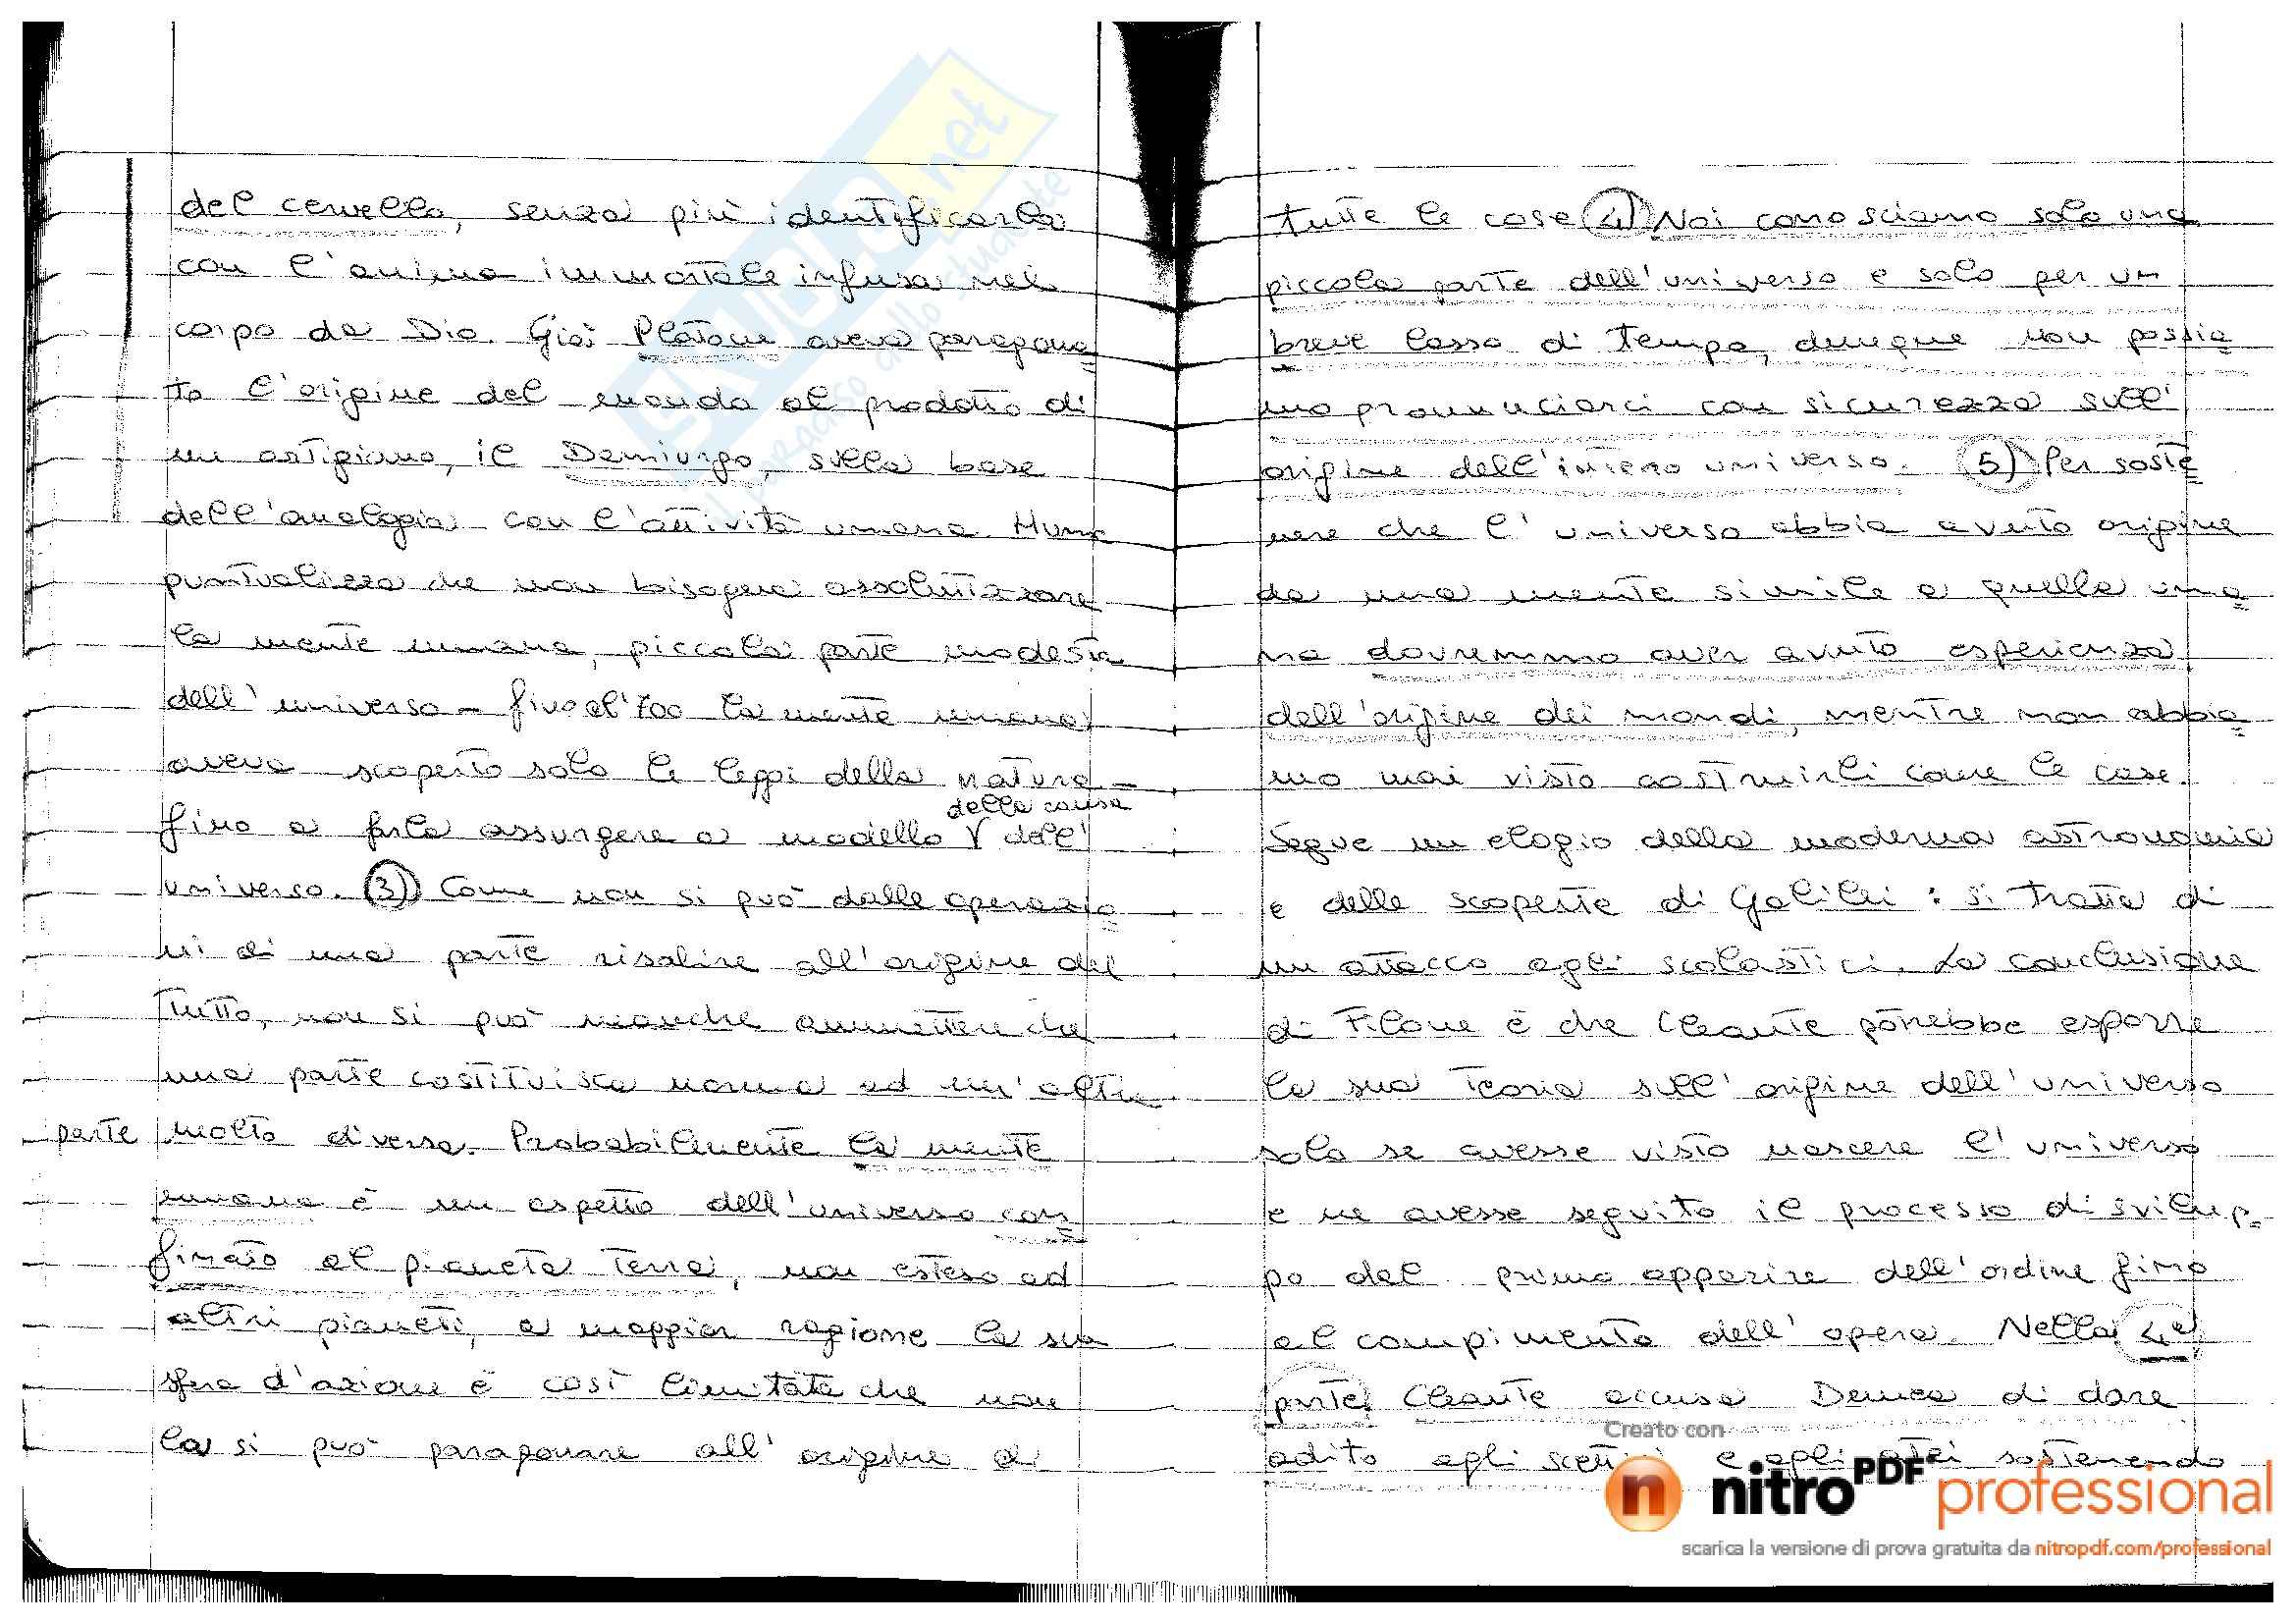 del cervello, senza più identificarla
con l'anima immortale infusa nel
corpo da Dio. Già Platone aveva paragona
to l'origine del mondo al prodotto di
un artigiano, il Demiurgo, sulla base
dell'analogia con l'attività umana. Hume
puntualizza che non bisogna assolutizzare
la mente umana, piccola parte modesta
dell'universo - fino al '700 la mente umana
aveva scoperto solo le leggi della natura -
della causa
fino a farla assurgere a modello V dell'
universo. (3) Come non si può dalle operazio
ni di una parte risalire all'origine del
Tutto, non si può neanche ammettere che
una parte costituisca norma ad un'altra
parte molto diversa. Probabilmente la mente
umana è un aspetto dell'universo con
finato al pianeta Terra, non esteso ad
altri pianeti, a maggior ragione la sua
sfera d'azione è così limitata che non
la si può paragonare all'origine di
tutte le cose (4) Noi conosciamo solo una
piccola parte dell'universo e solo per un
breve lasso di tempo, dunque non possia
mo pronunciarci con sicurezza sull'
origine dell'intero universo. (5) Per soste
nere che l'universo abbia avuto origine
da una mente simile a quella uma
na dovremmo aver avuto esperienza
dell'origine dei mondi, mentre non abbia
mo mai visto costruirli come le case.
Segue un elogio della moderna astronomia
e delle scoperte di Galilei : si tratta di
un attacco agli scolastici. La conclusione
di Filone è che Cleante potrebbe esporre
la sua teoria sull'origine dell'universo
solo se avesse visto nascere l'universo
e ne avesse seguito il processo di svilup-
po dal primo apparire dell'ordine fino
al compimento dell'opera. Nella 4a
parte Cleante accusa Demea di dare
adito agli scettici e agli atei sostenendo
SKUOLA.net
il paradiso dello studente
Creato con
nitro PDF professional
scarica la versione di prova gratuita da nitropdf.com/professional